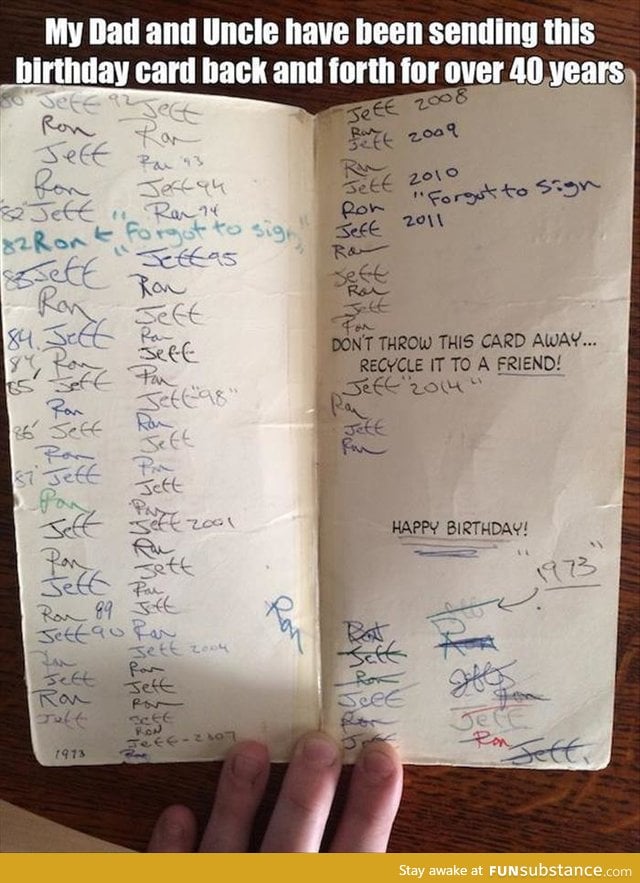 My Dad and Uncle have been sending this
birthday card back and forth for over 40 years
80 Jeff
Ron
Jeff
Ron
82 Jeff
82 Ron ← "Forgot to sign"
83 Jeff
Ron
84. Jeff
84, Ron
85, Jeff
Ron
86' Jeff
Ron
87' Jeff
Ron
Jeff
Ron
Jeff
Ron 89
Jeff 90
Ron
Jeff
Ron
Jeff
1973
92 Jeff
Ron
Ron '93
Jeff 94
Ron 94
Jeff 95
Ron
Jeff
Ron
Jeff
Ron
Jeff "98"
Ron
Jeff
Ron
Jeff
Ron
Jeff 2001
Ron
Jeff
Ron
Jeff
Ron
Jeff 2004
Ron
Jeff
Ron
Jeff
Ron
Jeff - 2007
Ron
Ron
Jeff 2008
Ron
Jeff 2009
Ron
Jeff 2010
Ron "Forgot to sign
Jeff 2011
Ron
Jeff
Ron
Jeff
Ron
DON'T THROW THIS CARD AWAY...
RECYCLE IT TO A FRIEND!
Jeff "2014"
Ron
Jeff
Ron
HAPPY BIRTHDAY!
"1973"
Ron
Jeff
Ron
Jeff
Ron
Jeff
Ron
Jeff
Ron
Jeff
Ron
Jeff.
Stay awake at FUNsubstance.com